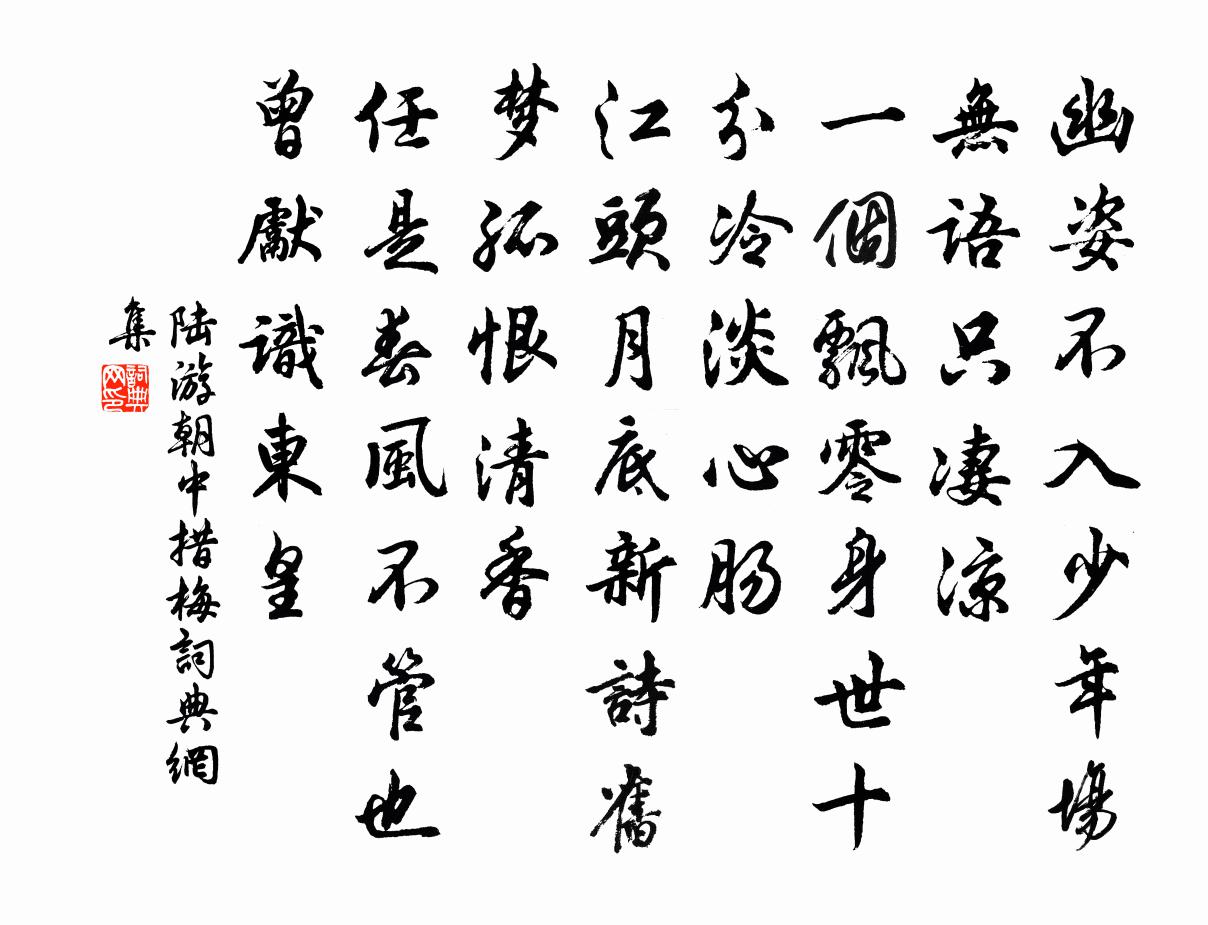 幽姿不入少年場
無語只凄涼
一個飄零身世十
分冷淡心肠
江頭月底新詩舊
梦孤恨清香
任是春風不管也
曾獻識東皇
陆游朝中措梅詞典網
集
詞典
网印